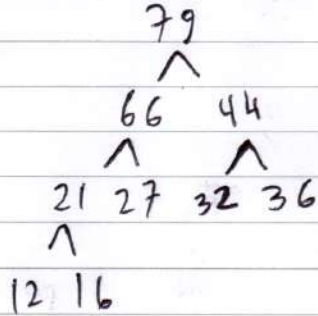 79
66 44
21 27 32 36
12 16